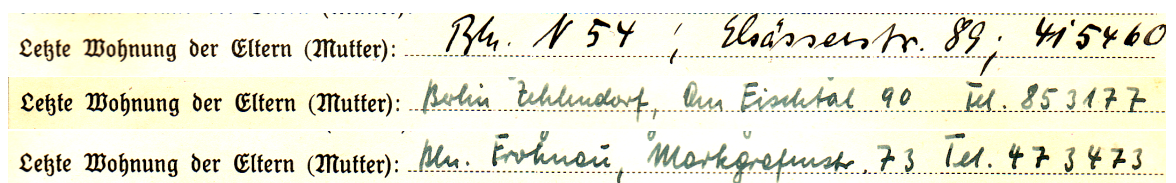 Letzte Wohnung der Eltern (Mutter): Bln. N 54 ; Elsässerstr. 89; 415460
Letzte Wohnung der Eltern (Mutter): Berlin Zehlendorf, Am Fischtal 90 Tel. 853177
Letzte Wohnung der Eltern (Mutter): Bln. Frohnau, Markgrafenstr. 73 Tel. 473473